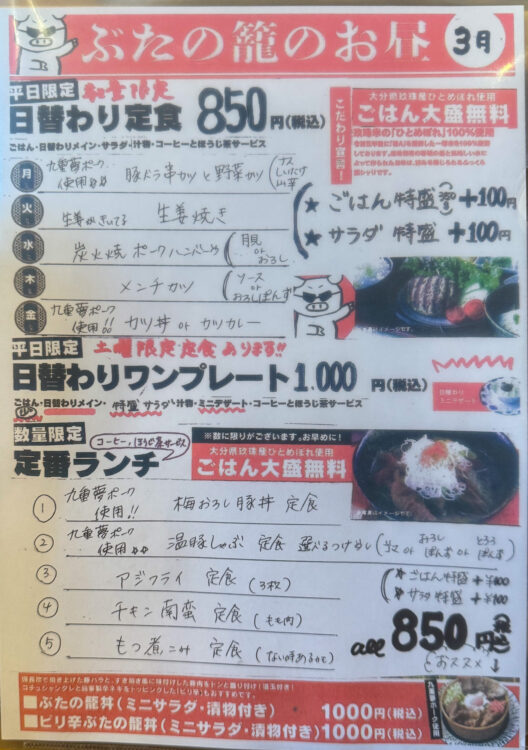 ぶたの籠のお昼 3月
平日限定 数量限定
日替わり定食 850円(税込)
ごはん・日替わりメイン・サラダ・汁物・コーヒーとほうじ茶サービス
こだわり宣言!
大分県玖珠産ひとめぼれ使用
ごはん大盛無料
玖珠米の「ひとめぼれ」100%使用
月 九重夢ポーク使用 豚バラ串カツと野菜カツ(ナス しいたけ
火 生姜がきいてる 生姜焼き
水 炭火焼ポークハンバーグ(月見 or おろし
木 メンチカツ(ソース or おろしぽんず
金 九重夢ポーク使用!! カツ丼 or カツカレー
★ ごはん 特盛 +100円
★ サラダ 特盛 +100円
※画像はイメージです。
平日限定 土曜限定定食あります!!
日替わりワンプレート 1,000円(税込)
ごはん・日替わりメイン・特盛サラダ・汁物・ミニデザート・コーヒーとほうじ茶サービス
日替わり
ミニデザート
数量限定
定番ランチ
コーヒー、ほうじ茶サービス
※数に限りがございます。お早めに!
大分県玖珠産ひとめぼれ使用
ごはん大盛無料
① 九重夢ポーク使用!! 梅おろし豚丼 定食
② 九重夢ポーク使用 温豚しゃぶ 定食 選べるつけダレ(ゴマ or おろしぽんず or とろろぽんず
③ アジフライ 定食 (3枚)
④ チキン南蛮 定食 (もも肉)
⑤ もつ煮こみ 定食 (ない時あるかも)
★ごはん特盛 +¥100
★サラダ特盛 +¥100
all 850円(税込)
おススメ↓
九重夢ポーク使用
■ぶたの籠丼(ミニサラダ・漬物付き) 1000円(税込)
■ピリ辛ぶたの籠丼(ミニサラダ・漬物付き) 1000円(税込)